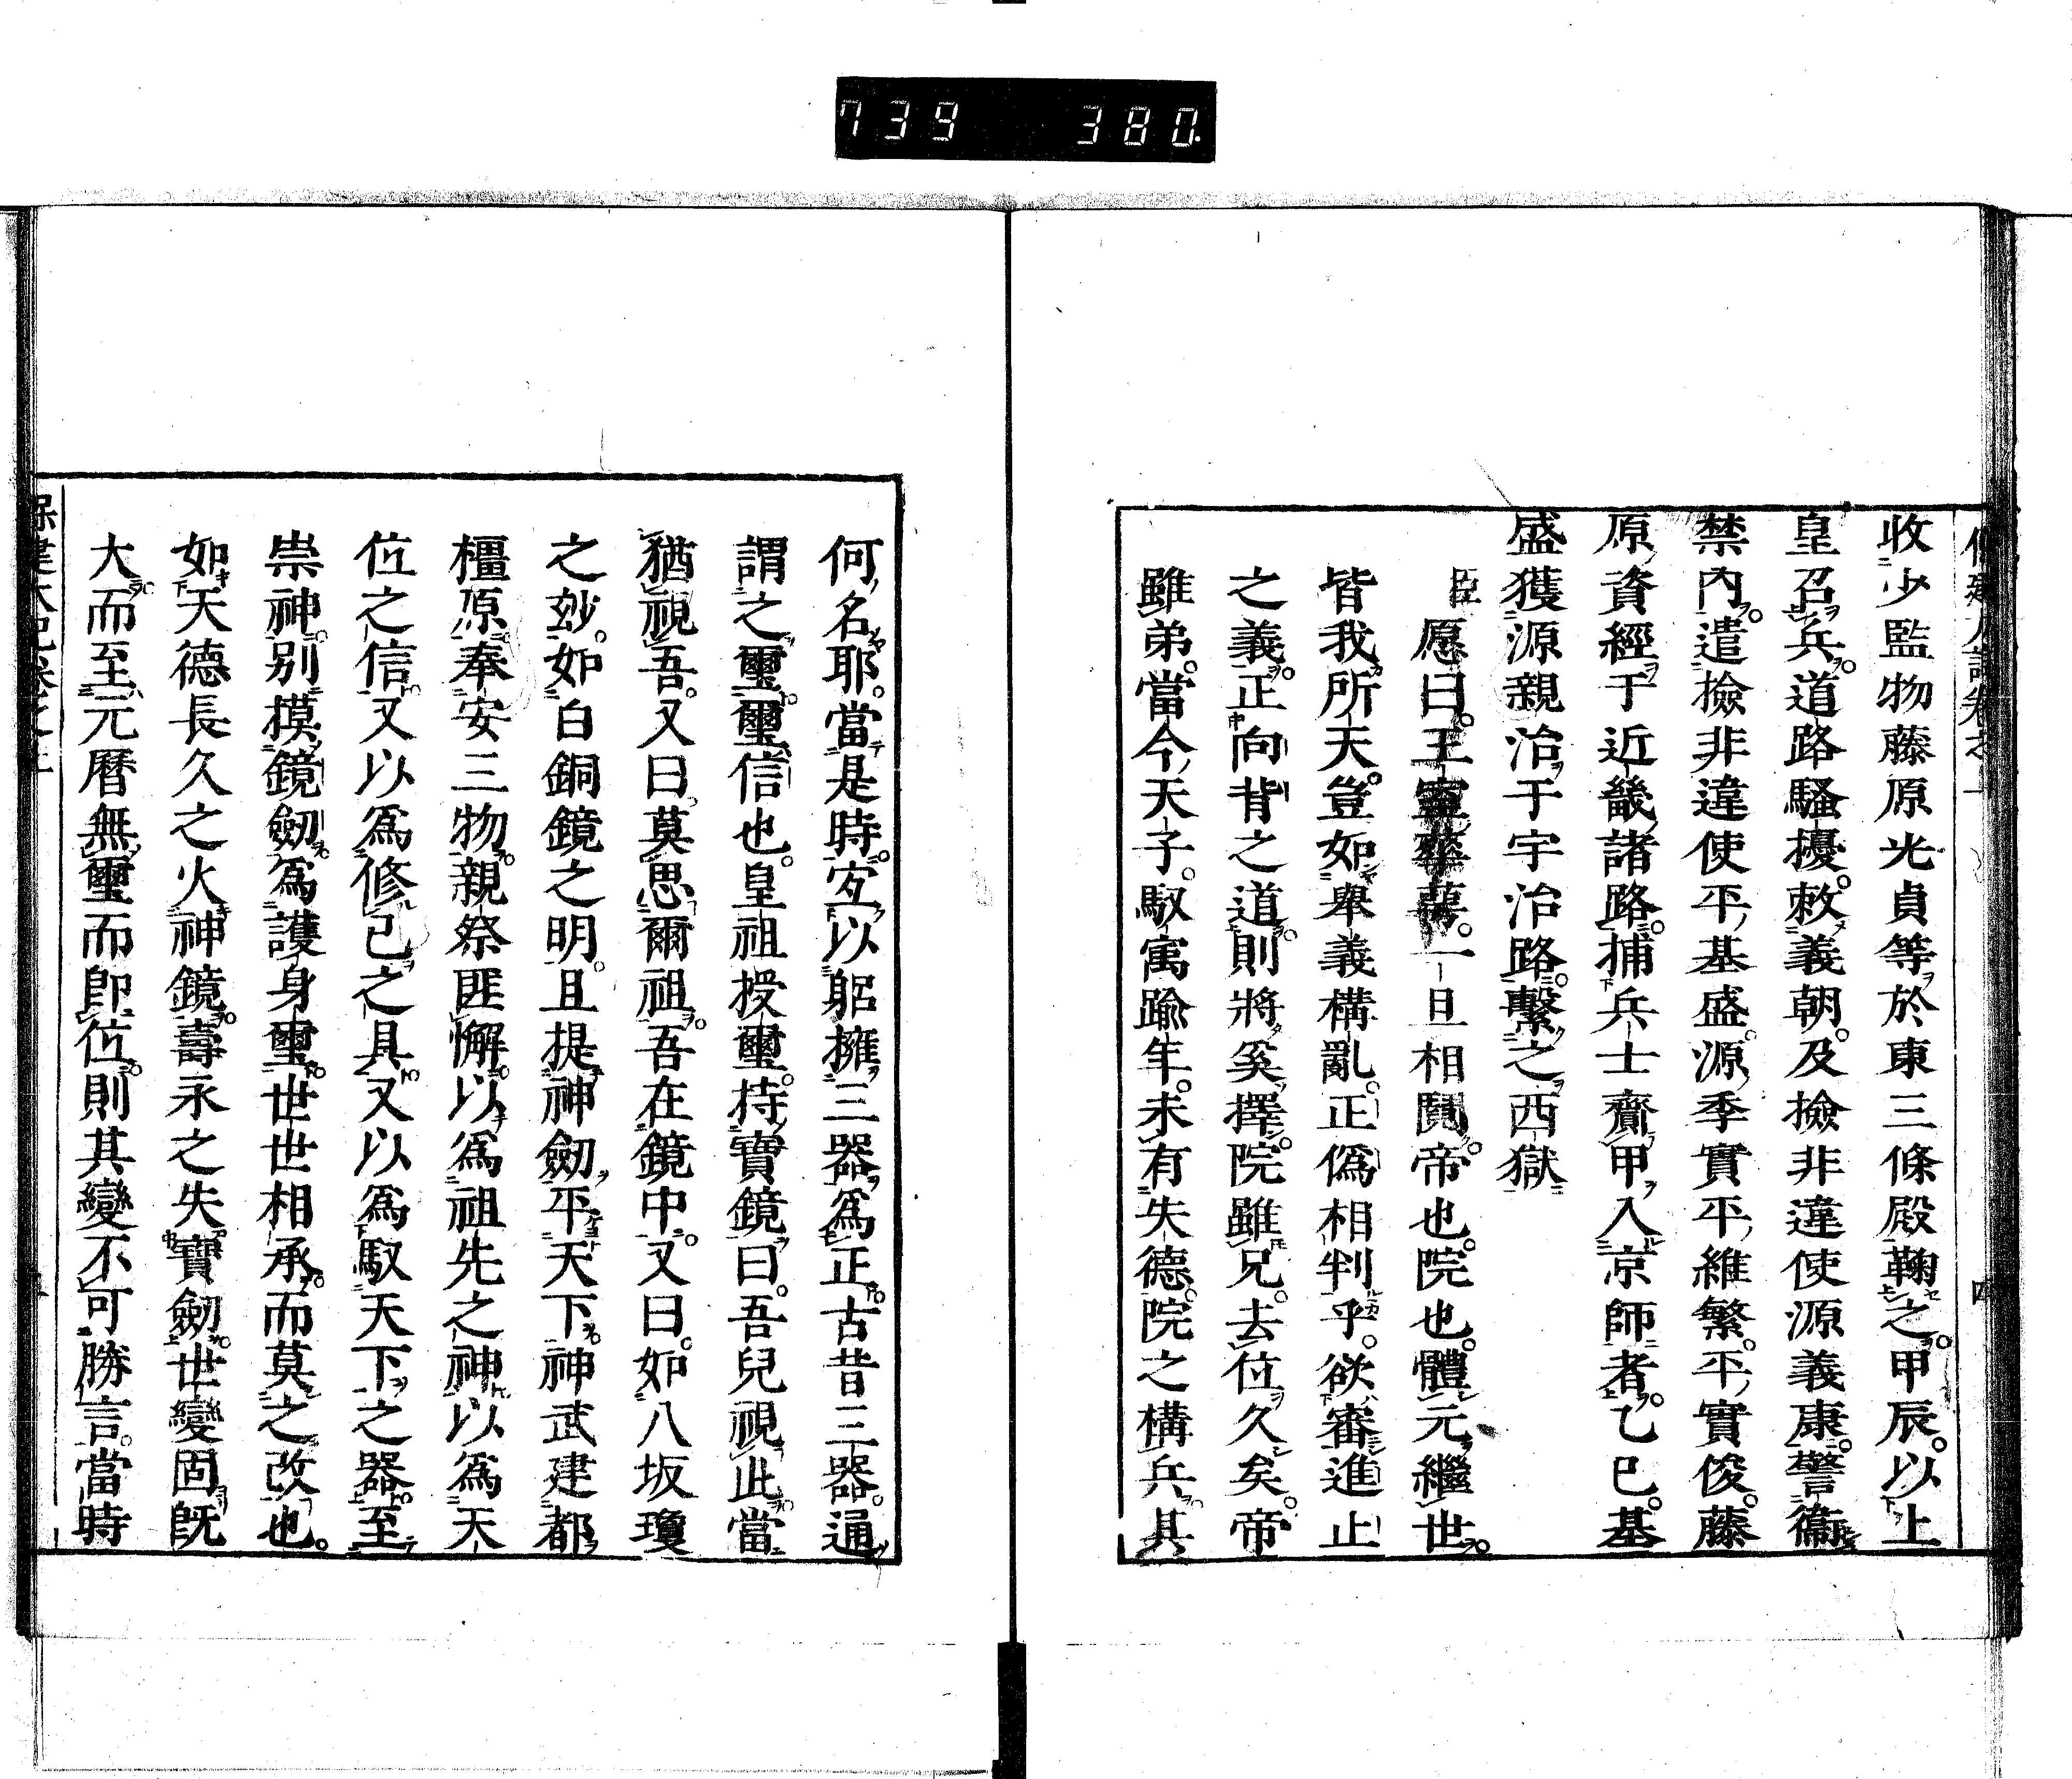 739 380
收少監物藤原光貞等於東三條殿鞠之。甲辰。以上
皇召兵。道路騷擾。敕義朝。及撿非違使源義康。警衞
禁內。遣撿非違使平基盛。源季實平維繁。平實俊。藤
原資經于近畿諸路。捕兵士齎甲入京師者。乙巳。基
盛獲源親治于宇治路。繫之西獄
臣愿曰。王室
一旦相鬩。帝也。院也。體元繼世。
皆我所天。豈如舉義構亂。正僞相判乎。欲審進止
之義。正向背之道。則將奚擇。院雖兄。去位久矣。帝
雖弟。當今天子。馭寓踰年。未有失德。院之構兵。其
何名耶。當是時。宐以躬擁三器爲正。古昔三器。通
謂之璽。璽信也。皇祖授璽。持寶鏡曰。吾兒視此。當
猶視吾。又曰。莫思爾祖。吾在鏡中。又曰。如八坂瓊
之玅。如白銅鏡之明。且提神劒。平天下。神武建都
橿原。奉安三物。親祭匪懈。以爲祖先之神。以爲天
位之信。又以爲修己之具。又以爲馭天下之器。至
崇神。別摸鏡劒。爲護身璽。世世相承。而莫之改也。
如天德長久之火神鏡。壽永之失寶劒。世變固旣
大而至元曆無璽而卽位。則其變不可勝言。當時